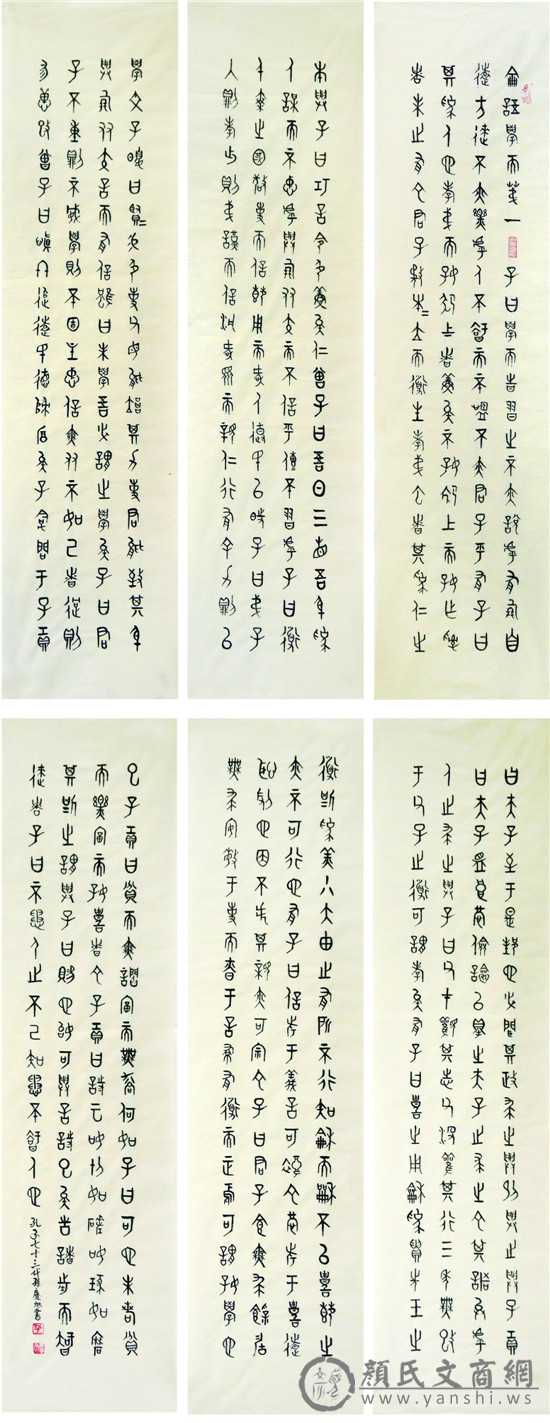 侖語學而第一 子曰學而時習之不亦說乎有朋自
遠方來不亦樂乎人不知而不慍不亦君子乎有子曰
其為人也孝弟而好犯上者鮮矣不好犯上而好作亂
者未之有也君子務本=立而道生孝弟也者其為仁之
本與子曰巧言令色鮮矣仁曾子曰吾日三省吾身為
人謀而不忠乎與朋友交而不信乎傳不習乎子曰道
千乘之國敬事而信節用而愛人使民以時子曰弟子
入則孝出則弟謹而信汎愛眾而親仁行有餘力則以
學文子夏曰賢=易色事父母能竭其力事君能致其身
與朋友交言而有信雖曰未學吾必謂之學矣子曰君
子不重則不威學則不固主忠信無友不如己者過則
勿憚改曾子曰慎終追遠民德歸厚矣子禽問于子貢
曰夫子至于是邦也必聞其政求之與抑與之與子貢
曰夫子溫良恭儉讓以得之夫子之求之也其諸異乎
人之求之與子曰父在觀其志父沒觀其行三年無改
于父之道可謂孝矣有子曰禮之用和為貴先王之
道斯為美小大由之有所不行知和而和不以禮節之
亦不可行也有子曰信近于義言可復也恭近于禮遠
恥辱也因不失其親亦可宗也子曰君子食無求飽居
無求安敏于事而慎于言就有道而正焉可謂好學也
已子貢曰貧而無諂富而無驕何如子曰可也未若貧
而樂富而好禮者也子貢曰詩云如切如磋如琢如磨
其斯之謂與子曰賜也始可與言詩已矣告諸往而知
來者子曰不患人之不己知患不知人也 孔子七十三代孫慶書
顏氏文商網
www.yanshi.ws